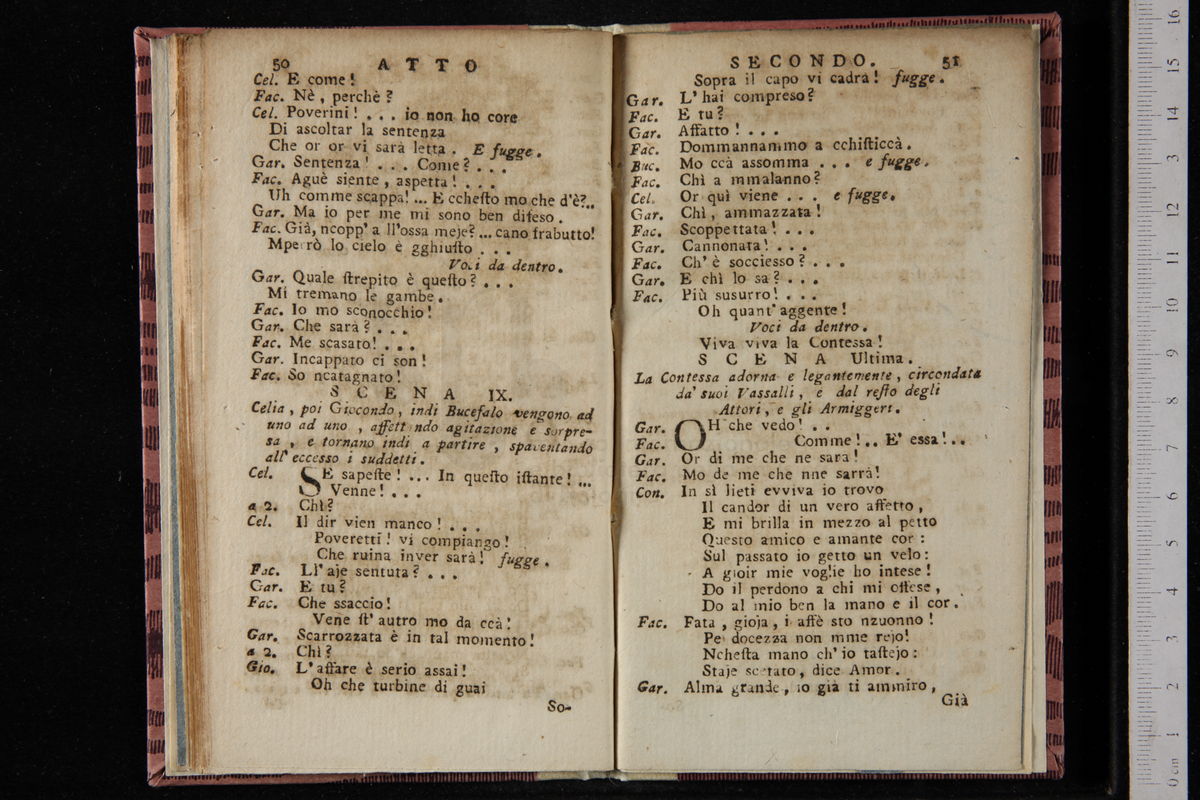 50 ATTO
Cel. E come!
Fac. Nè, perchè?
Cel. Poverini! ... io non ho core
Di ascoltar la sentenza
Che or or vi sarà letta. E fugge.
Gar. Sentenza! ... Come? ...
Fac. Aguè siente, aspetta! ...
Uh comme scappa! ... E cchesto mo che d'è?..
Gar. Ma io per me mi sono ben difeso.
Fac. Già, ncopp' a ll'ossa meje? ... cano frabutto!
Mperrò lo cielo è gghiusto ...
Voci da dentro.
Gar. Quale strepito è questo? ...
Mi tremano le gambe.
Fac. Io mo sconocchio!
Gar. Che sarà? ...
Fac. Me scasato! ...
Gar. Incappato ci son!
Fac. So ncatagnato!
SCENA IX.
Celia, poi Giocondo, indi Bucefalo vengono ad
uno ad uno, affettando agitazione e sorpre-
sa, e tornano indi a partire, spaventando
all' eccesso i suddetti.
Cel. SE sapeste! ... In questo istante! ...
Venne! ...
a 2. Chì?
Cel. Il dir vien manco! ...
Poveretti! vi compiango!
Che ruina inver sarà! fugge.
Fac. Ll' aje sentuta? ...
Gar. E tu?
Fac. Che ssaccio!
Vene st' autro mo da ccà!
Gar. Scarrozzata è in tal momento!
a 2. Chì?
Gio. L' affare è serio assai!
Oh che turbine di guai
So-
SECONDO. 51
Sopra il capo vi cadrà! fugge.
Gar. L' hai compreso?
Fac. E tu?
Gar. Affatto! ...
Fac. Dommannammo a cchisticcà.
Buc. Mo ccà assomma ... e fugge.
Fac. Chì a mmalanno?
Cel. Or quì viene ... e fugge.
Gar. Chì, ammazzata!
Fac. Scoppettata! ...
Gar. Cannonata! ...
Fac. Ch' è socciesso? ...
Gar. E chì lo sa? ...
Fac. Più susurro! ...
Oh quant' aggente!
Voci da dentro.
Viva viva la Contessa!
SCENA Ultima.
La Contessa adorna e legantemente, circondata
da' suoi Vassalli, e dal resto degli
Attori, e gli Armiggeri.
Gar. OH che vedo! ..
Fac. Comme! .. E' essa! ..
Gar. Or di me che ne sarà!
Fac. Mo de me che nne sarrà!
Con. In sì lieti evviva io trovo
Il candor di un vero affetto,
E mi brilla in mezzo al petto
Questo amico e amante cor:
Sul passato io getto un velo:
A gioir mie voglie ho intese!
Do il perdono a chi mi offese,
Do al mio ben la mano e il cor.
Fac. Fata, gioja, i affè sto nzuonno!
Pe docezza non mme rejo!
Nchesta mano ch' io tastejo:
Staje scetato, dice Amor.
Gar. Alma grande, io già ti ammiro,
Già